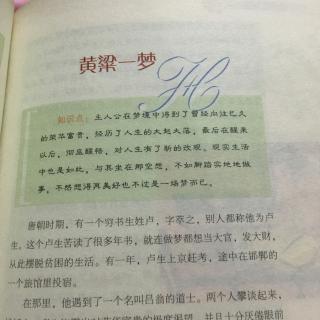 黄粱一梦
知识点：主人公在梦境中得到了曾经向往已久
的荣华富贵，经历了人生的大起大落，最后在醒来
以后，彻底醒悟，对人生有了新的改观。现实生活
中也是如此，与其坐在那空想，不如脚踏实地地做
事，不然想得再美好也不过是一场梦而已。
唐朝时期，有一个穷书生姓卢，字萃之，别人都称他为卢
生。这个卢生苦读了很多年书，就连做梦都想当大官，发大财，
从此摆脱贫困的生活。有一年，卢生上京赶考，途中在邯郸的
一个旅馆里投宿。
在那里，他遇到了一个名叫吕翁的道士。两个人攀谈起来，